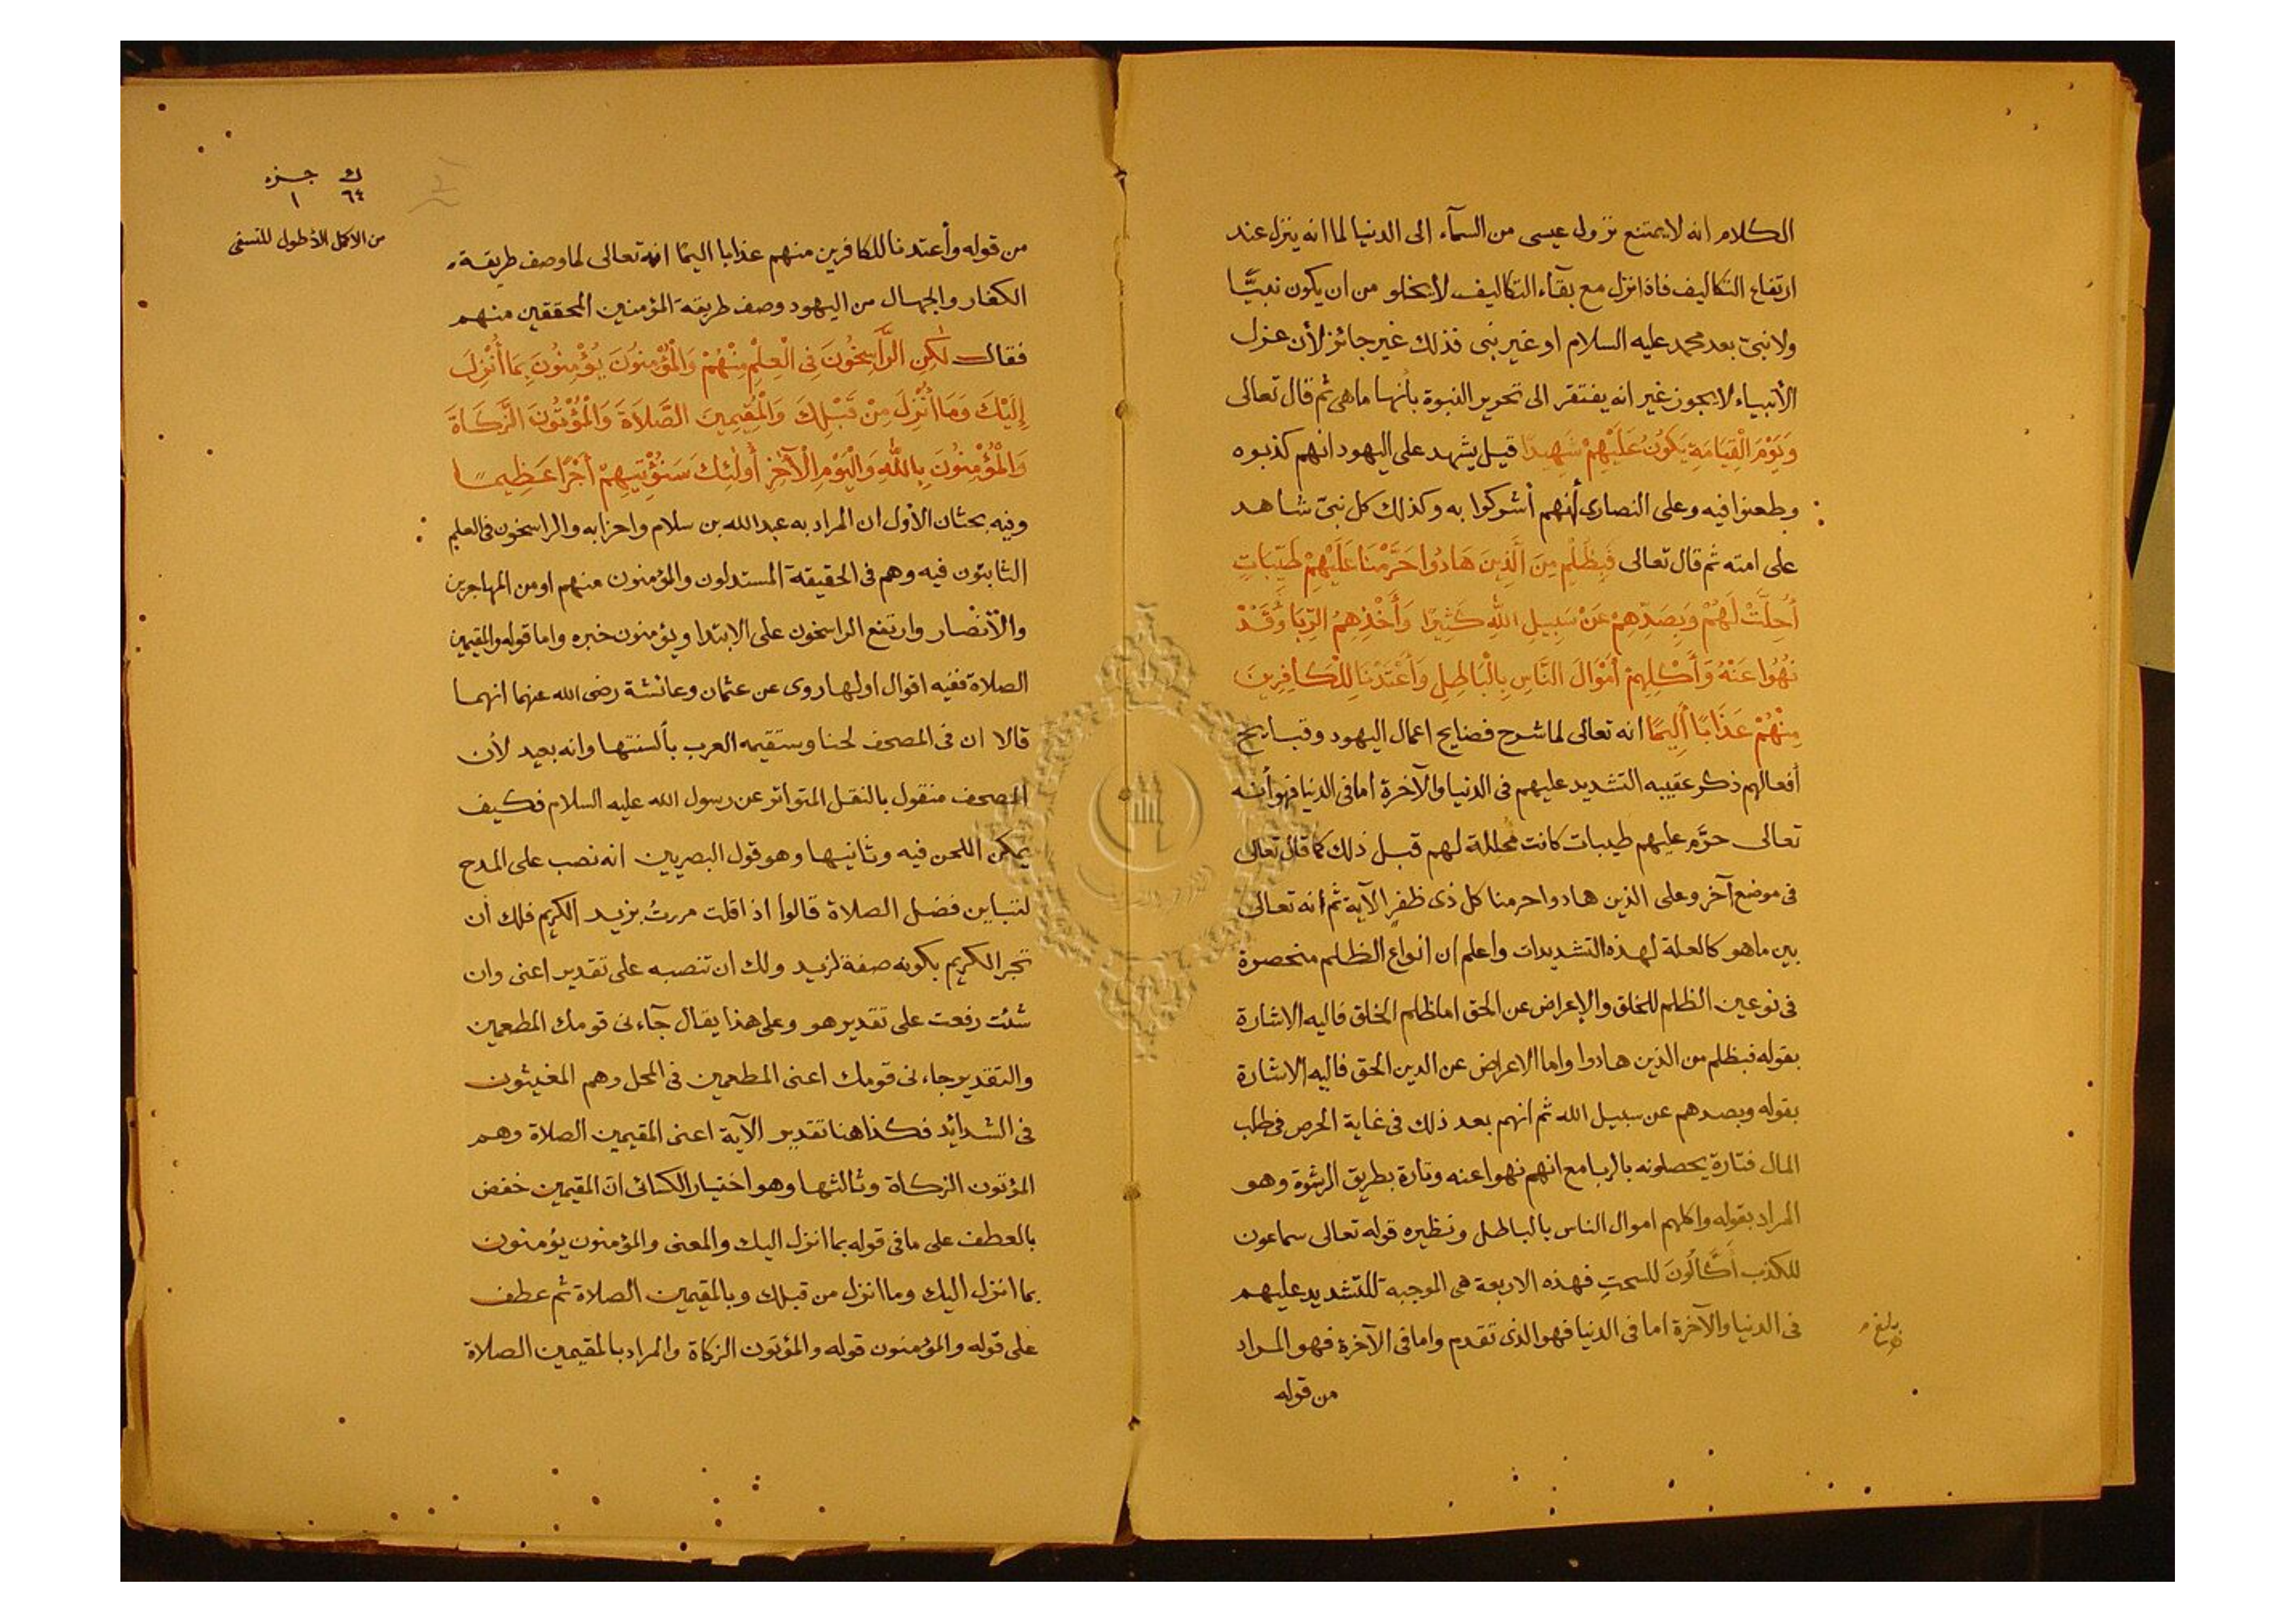 الكلام انه لا يمتنع نزول عيسى من السمآء الى الدنيا لما انه ينزل عند
ارتفاع التكاليف فاذا نزل مع بقآء التكاليف لا يخلو من ان يكون نبيًّا
ولا نبيّ بعد محمد عليه السلام او غير نبى فذلك غير جائز لأن عزل
الأنبياء لا يجوز غير انه يفتقر الى تحرير النبوة بأنها ما هى ثم قال تعالى
وَيَوْمَ الْقِيَامَةِ يَكُونُ عَلَيْهِمْ شَهِيدًا قيل يشهد على اليهود انهم كذبوه
وطعنوا فيه وعلى النصارى أنهم أشركوا به وكذلك كل نبىّ شاهد
على امته ثم قال تعالى فَبِظُلْمٍ مِنَ الَّذِينَ هَادُوا حَرَّمْنَا عَلَيْهِمْ طَيِّبَاتٍ
أُحِلَّتْ لَهُمْ وَبِصَدِّهِمْ عَنْ سَبِيلِ اللهِ كَثِيرًا وَأَخْذِهِمُ الرِّبَا وَقَدْ
نُهُوا عَنْهُ وَأَكْلِهِمْ أَمْوَالَ النَّاسِ بِالْبَاطِلِ وَأَعْتَدْنَا لِلْكَافِرِينَ
مِنْهُمْ عَذَابًا أَلِيمًا انه تعالى لما شرح فضايح اعمال اليهود وقبايح
أفعالهم ذكر عقيبه التشديد عليهم فى الدنيا والآخرة أما فى الدنيا فهو أنه
تعالى حرّم عليهم طيبات كانت محللة لهم قبل ذلك كما قال تعالى
فى موضع آخر وعلى الذين هادوا حرمنا كل ذى ظفرٍ الآية ثم انه تعالى
بين ما هو كالعلة لهذه التشديدات واعلم ان انواع الظلم منحصرة
فى نوعين الظلم للخلق والإعراض عن الحق اما ظلم الخلق فاليه الاشارة
بقوله فبظلم من الذين هادوا واما الاعراض عن الدين الحق فاليه الاشارة
بقوله وبصدهم عن سبيل الله ثم انهم بعد ذلك فى غاية الحرص فى طلب
المال فتارة يحصلونه بالربا مع انهم نهوا عنه وتارة بطريق الرشوة وهو
المراد بقوله واكلهم اموال الناس بالباطل ونظيره قوله تعالى سماعون
للكذب أَكَّالُونَ للسحتِ فهذه الاربعة هى الموجبة للتشديد عليهم
فى الدنيا والآخرة اما فى الدنيا فهو الذى تقدم واما فى الآخرة فهو المراد
من قوله
ك جزء
٦٤ ١
من الاكمل الأطول للنسفى
من قوله وأعتدنا للكافرين منهم عذابا اليمًا انه تعالى لما وصف طريقة
الكفار والجهال من اليهود وصف طريقة المؤمنين المحققين منهم
فقال لٰكِنِ الرَّاسِخُونَ فِى الْعِلْمِ مِنْهُمْ وَالْمُؤْمِنُونَ يُؤْمِنُونَ بِمَا أُنْزِلَ
إِلَيْكَ وَمَا أُنْزِلَ مِنْ قَبْلِكَ وَالْمُقِيمِينَ الصَّلَاةَ وَالْمُؤْتُونَ الزَّكَاةَ
وَالْمُؤْمِنُونَ بِاللهِ وَالْيَوْمِ الْآخِرِ أُولٰئِكَ سَنُؤْتِيهِمْ أَجْرًا عَظِيمًا
وفيه بحثان الأول ان المراد به عبد الله بن سلام واحزابه والراسخون فى العلم
الثابتون فيه وهم فى الحقيقة المستدلون والمؤمنون منهم او من المهاجرين
والأنصار وارتفع الراسخون على الابتدا ويؤمنون خبره واما قوله والمقيمين
الصلاة ففيه اقوال اولها روى عن عثمان وعائشة رضى الله عنهما انهما
قالا ان فى المصحف لحنا وستقيمه العرب بألسنتها وانه بعيد لأن
المصحف منقول بالنقل المتواتر عن رسول الله عليه السلام فكيف
يمكن اللحن فيه وثانيها وهو قول البصريين انه نصب على المدح
لتباين فضل الصلاة قالوا اذا قلت مررتُ بزيد الكريم فلك أن
تجر الكريم بكونه صفة لزيد ولك ان تنصبه على تقدير اعنى وان
شئت رفعت على تقدير هو وعلى هذا يقال جآءنى قومك المطعمين
والتقدير جاءنى قومك اعنى المطعمين فى المحل وهم المغيثون
فى الشدائد فكذا هنا تقدير الآية اعنى المقيمين الصلاة وهم
المؤتون الزكاة وثالثها وهو اختيار الكسائى ان المقيمين خفض
بالعطف على ما فى قوله بما انزل اليك والمعنى والمؤمنون يؤمنون
بما انزل اليك وما انزل من قبلك وبالمقيمين الصلاة ثم عطف
على قوله والمؤمنون قوله والمؤتون الزكاة والمراد بالمقيمين الصلاة